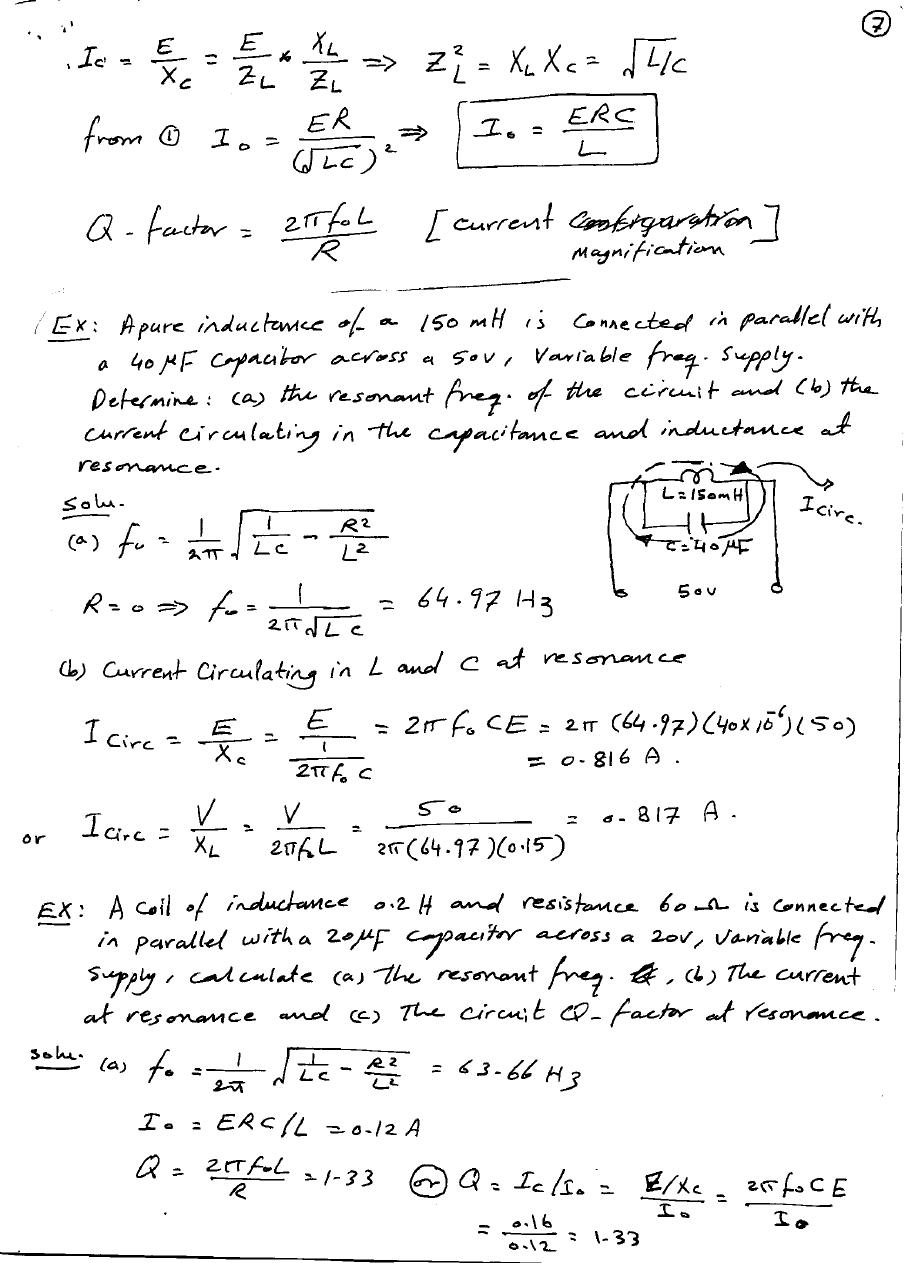 ⑦
I_c = E/X_c = E/Z_L * X_L/Z_L ⇒ Z_L² = X_L X_c = √L/C
from ① I_o = ER/(√LC)² ⇒ I_o = ERC/L
Q - factor = 2πf_oL/R [current Magnification]
EX: A pure inductance of a 150 mH is connected in parallel with
a 40 μF Capacitor across a 50v, Variable freq. Supply.
Determine: (a) the resonant freq. of the circuit and (b) the
current circulating in the capacitance and inductance at
resonance.
L=150mH
C=40μF
50v
I circ.
Solu.
(a) f_o = 1/2π √1/LC - R²/L²
R=0 ⇒ f_o = 1/2π√LC = 64.97 Hz
(b) Current Circulating in L and C at resonance
I circ = E/X_c = E/(1/2πf_oC) = 2πf_oCE = 2π (64.97)(40x10⁻⁶)(50)
= 0.816 A.
or I circ = V/X_L = V/2πf_oL = 50/2π(64.97)(0.15) = 0.817 A.
EX: A Coil of inductance 0.2 H and resistance 60 Ω is connected
in parallel with a 20μF capacitor across a 20v, variable freq.
Supply, calculate (a) The resonant freq. , (b) The current
at resonance and (c) The circuit Q-factor at resonance.
Solu. (a) f_o = 1/2π √1/LC - R²/L² = 63.66 Hz
I_o = ERC/L = 0.12 A
Q = 2πf_oL/R = 1.33 or Q = I_c/I_o = E/X_c/I_o = 2πf_oCE/I_o
= 0.16/0.12 = 1.33